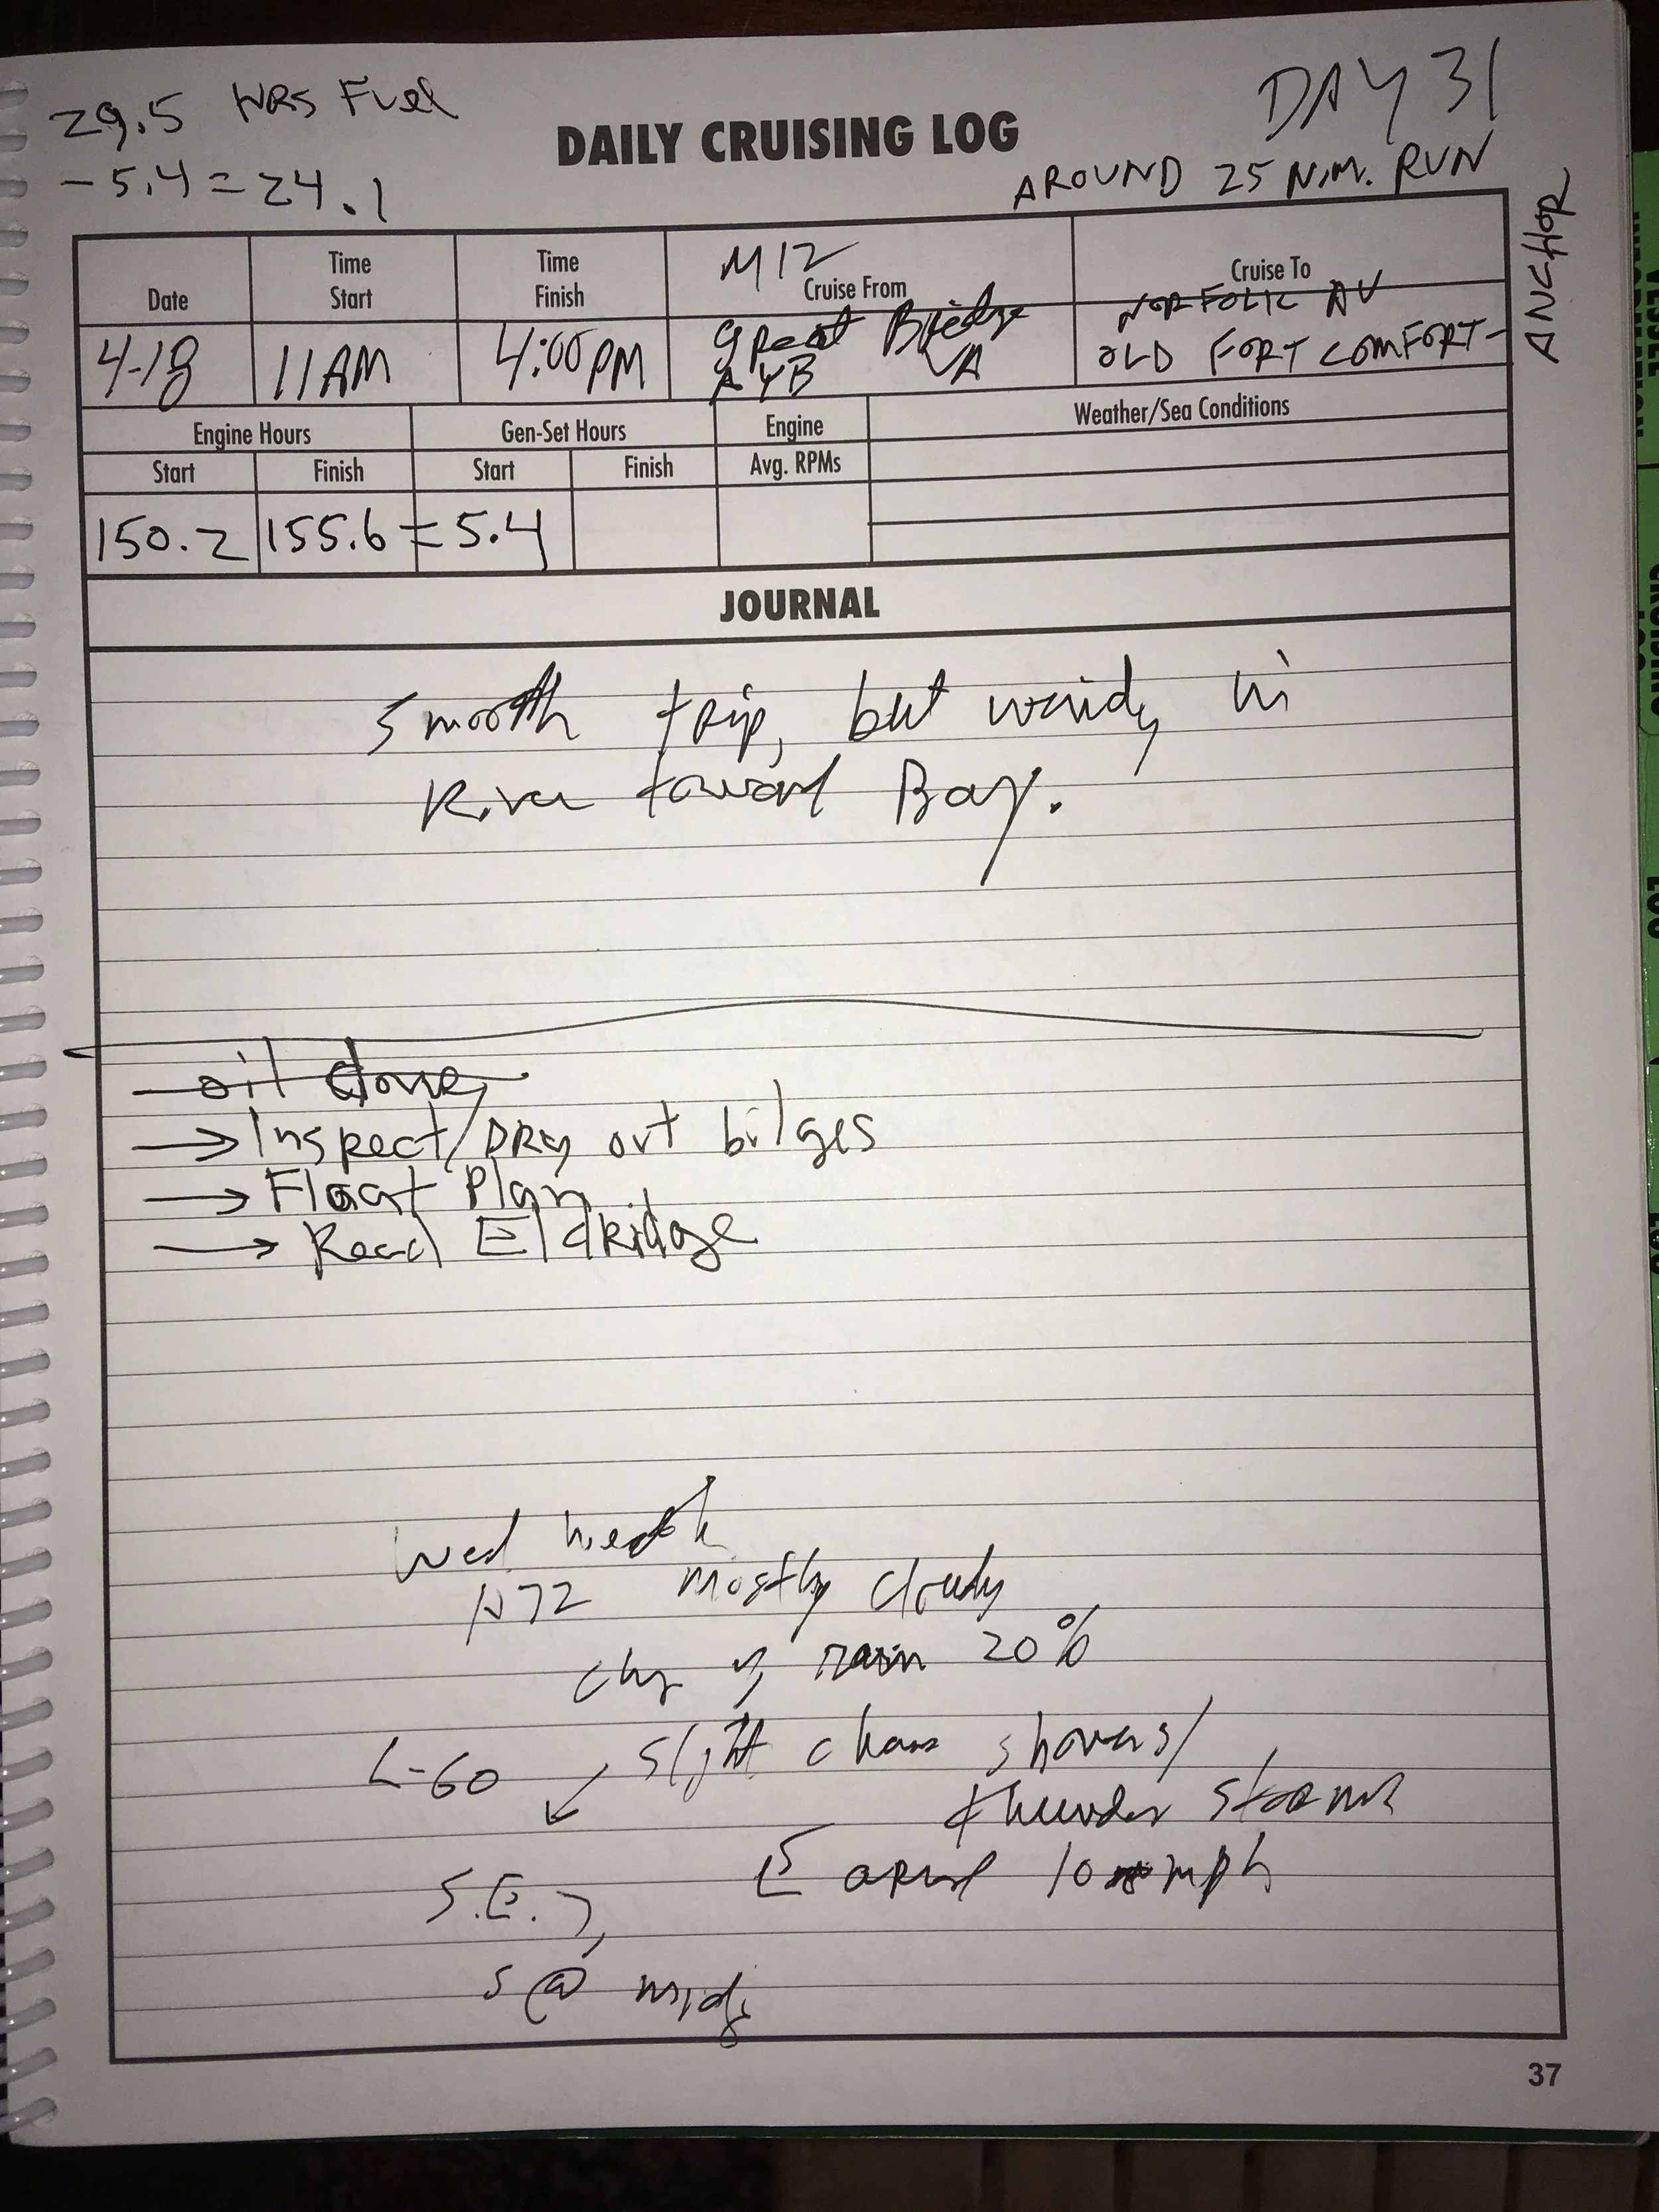 29.5 HRS Fuel
- 5.4 = 24.1
DAILY CRUISING LOG
DAY 31
AROUND 25 N.M. RUN
ANCHOR
Date
Time Start
Time Finish
M12
Cruise From
Cruise To
4-18
11AM
4:00PM
Great Bridge
AYB VA
NORFOLK
OLD FORT COMFORT-
Engine Hours
Gen-Set Hours
Engine
Weather/Sea Conditions
Start
Finish
Start
Finish
Avg. RPMs
150.2
155.6 = 5.4
JOURNAL
Smooth trip, but windy in
River toward Bay.
oil done
→ Inspect/DRy out bilges
→ Float Plan
→ Read EldRidge
Wed
72 mostly cloudy
rain 20%
L-60 slight showers/
thunder storms
10 mph
S.E.
S @
37